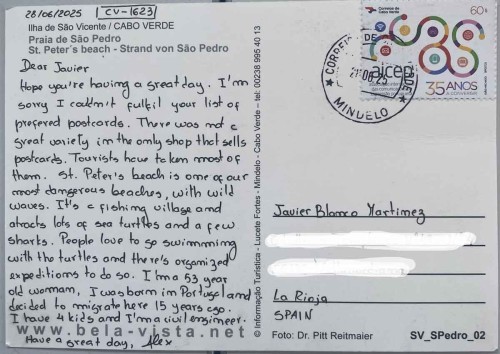 28/06/2025 CV-1623
Ilha de São Vicente / CABO VERDE
Praia de São Pedro
St. Peter's beach - Strand von São Pedro
Dear Javier
Hope you're having a great day. I'm
sorry I couldn't fulfil your list of
prefered postcards. There was not a
great variety in the only shop that sells
postcards. Tourists have taken most of
them. St. Peter's beach is one of our
most dangerous beaches, with wild
waves. It's a fishing village and
atracts lots of sea turtles and a few
sharks. People love to go swimmming
with the turtles and there's organized
expeditions to do so. I'm a 53 year
old womam, I was born in Portugal and
decided to migrate here 15 years ago.
I have 4 kids and I'm a civil engineer.
Have a great day, Alex
www.bela-vista.net
© Informação Turística - Lucete Fortes - Mindelo - Cabo Verde – tel. 00238 995 40 13
Correios de Cabo Verde
60$
aicep
35 ANOS
CORREIOS DE
VERDE
MINDELO
Javier Blanco Martinez
La Rioja
SPAIN
Foto: Dr. Pitt Reitmaier
SV_SPedro_02